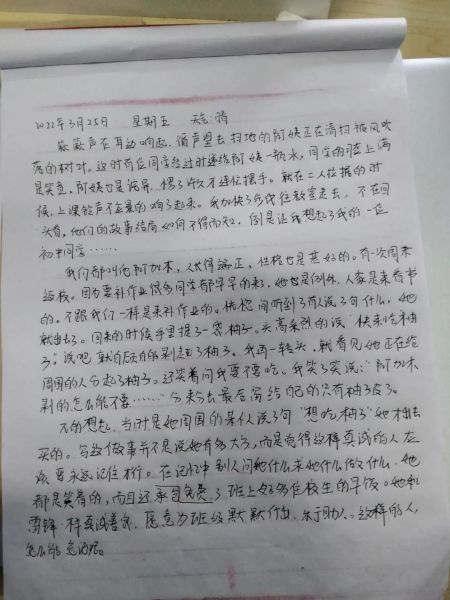 2022年3月25日 星期五 天气:晴
簌簌声在耳边响起,循声望去扫地的阿姨正在清扫被风吹
落的树叶。这时有位同学经过时递给阿姨一瓶水,同学的脸上满
是笑意,阿姨也是诧异,愣了许久才连忙摆手。就在二人拉扯的时
候,上课铃声不应景的响了起来。我加快了步伐往教室走去,不在回
头看,他们的故事结局如何不得而知,倒是让我想起了我的一位
初中同学……
我们都叫她阿加木,人长得端正,性格也是甚好的。有一次周末
返校。因为要补作业很多同学都早早的来了,她也是例外,人家是来看书
的。不跟我们一样是来补作业的。恍惚间听到了有人说了句什么,她
就出去了。回来的时候手里提了一袋柚子。兴高采烈的说"快来吃柚
子",说吧就自顾自的剥起了柚子。我再一转头,就看见她正在给
周围的人分起了柚子。还笑着问我要不要吃。我笑了笑说:"阿加木
剥的怎么能不要……"分来分去最后留给自己的只有柚子皮了。
不的想起,当时是她周围的某人说了句"想吃柚子"她才出去
买的。写这做事并不是说她有多大方,而是觉得这样真诚的人应
该要永远记住才行。在记忆中别人问她什么求她什么做什么,她
都是笑着的,而且还承包免费了班上好多住校生的早饭。她和
雷锋一样真诚善良,愿意为班级默默付出,乐于助人。这样的人,
怎么能忘记呢。